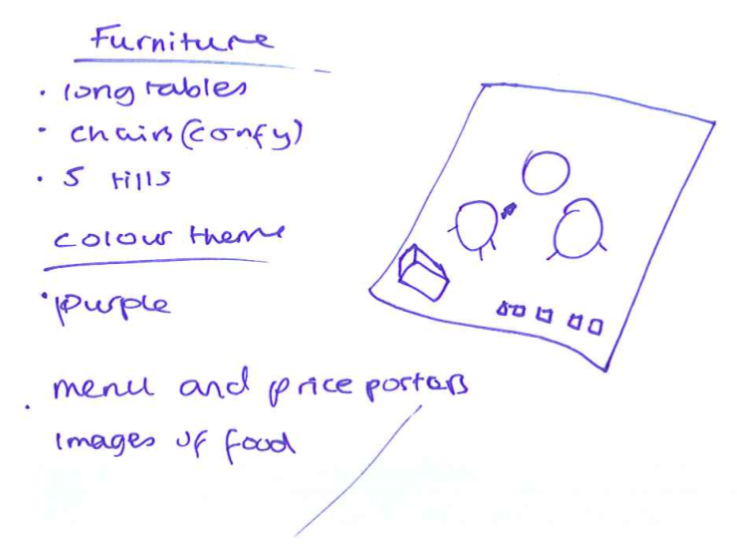 Furniture
• long tables
• chairs (comfy)
• 5 tills
colour theme
• purple
• menu and price posters
images of food